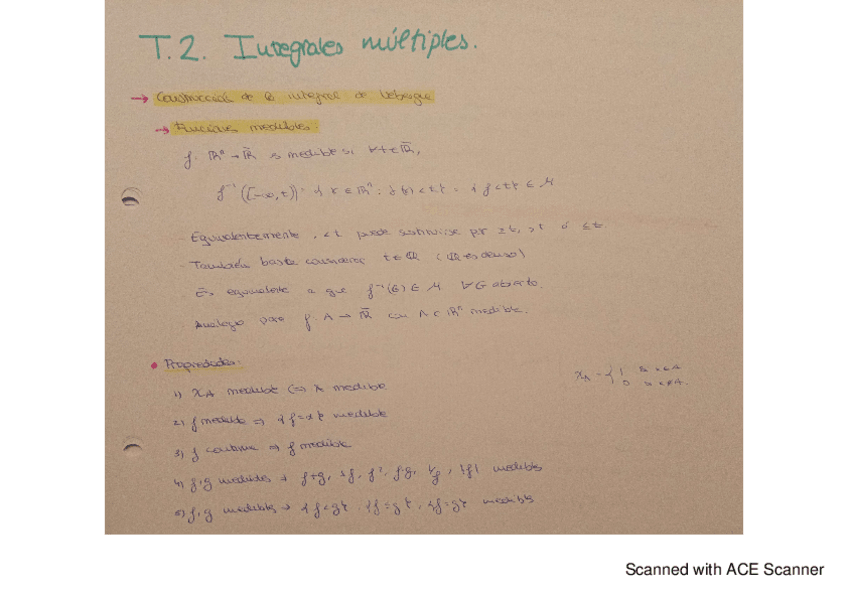 T.2. Integrales múltiples.
→ Construcción de la integral de Lebesgue
→ Funciones medibles:
f: ℝⁿ → ℝ̄ es medible si ∀t ∈ ℝ̄,
f⁻¹([-∞,t)) = {x ∈ ℝⁿ: f(x) < t} = {f < t} ∈ M
- Equivalentemente, < t puede sustituirse por ≥ t, > t ó ≤ t
- También basta considerar t ∈ ℚ (ℚ es denso)
- Es equivalente a que f⁻¹(G) ∈ M ∀G abierto.
- Análogo para f: A → ℝ̄ con A ⊂ ℝⁿ medible.
• Propiedades:
1) χ_A medible ⇔ A medible
χ_A = { 1 si x ∈ A
0 si x ∉ A.
2) f medible ⇒ {f = α} medible
3) f continua ⇒ f medible
4) f, g medibles → f+g, λf, f², f·g, 1/f, |f| medibles
5) f, g medibles → {f < g}, {f = g}, {f = g} medibles
Scanned with ACE Scanner